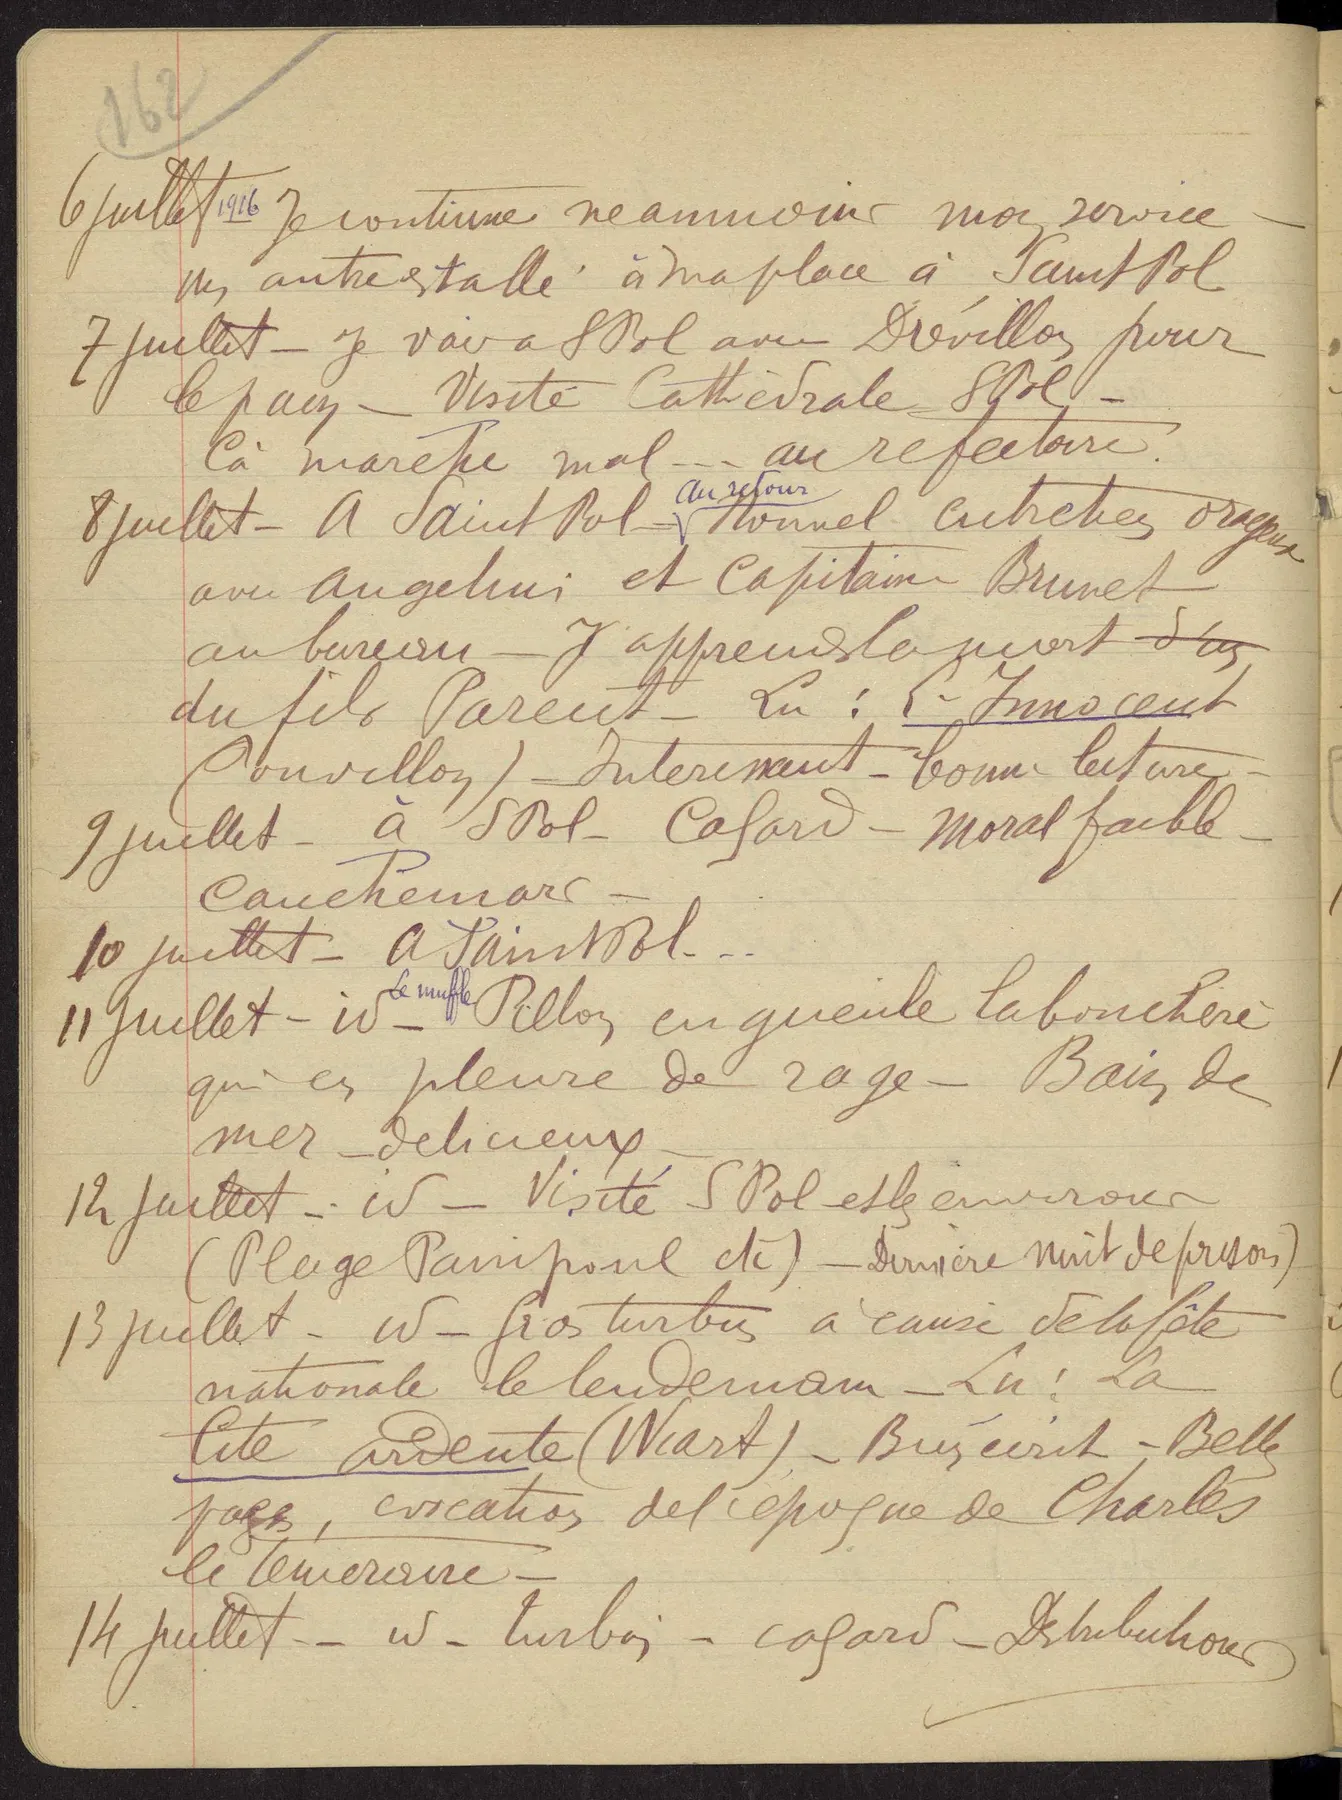 162
6 juillet 1916 Je continue neanmoins mon service —
un autre est allé à ma place à Saint Pol
7 juillet — Je vais a S Pol avec Drévillon pour
le pain — Visité Cathédrale S Pol —
Cà marche mal --- au refectoire.
au retour
8 juillet — A Saint Pol — Nouvel entretien orageux
avec Angelini et Capitaine Brunet
au bureau — J'apprends la mort d'un
du fils Parent — Lu : L'Innocent
(Pouvillon) — Interessant — bonne lecture —
9 juillet — à S Pol — Cafard — moral faible —
Cauchemars —
10 juillet — A Saint Pol. ..
le muffle
11 juillet — id — Pillon engueule Labouchère
qui en pleure de rage — Bain de
mer — delicieux —
12 juillet — id — Visité S Pol et les environs
(Plage Pempoul etc) — Dernière nuit de prison)
13 juillet — id — gros turbin à cause de la fête
nationale le lendemain — Lu : La
Cité ardente (Wiart) — Bien écrit — Belles
pages, evocation de l'epoque de Charles
le Téméraire —
14 juillet — id — turbin — cafard — Distributions